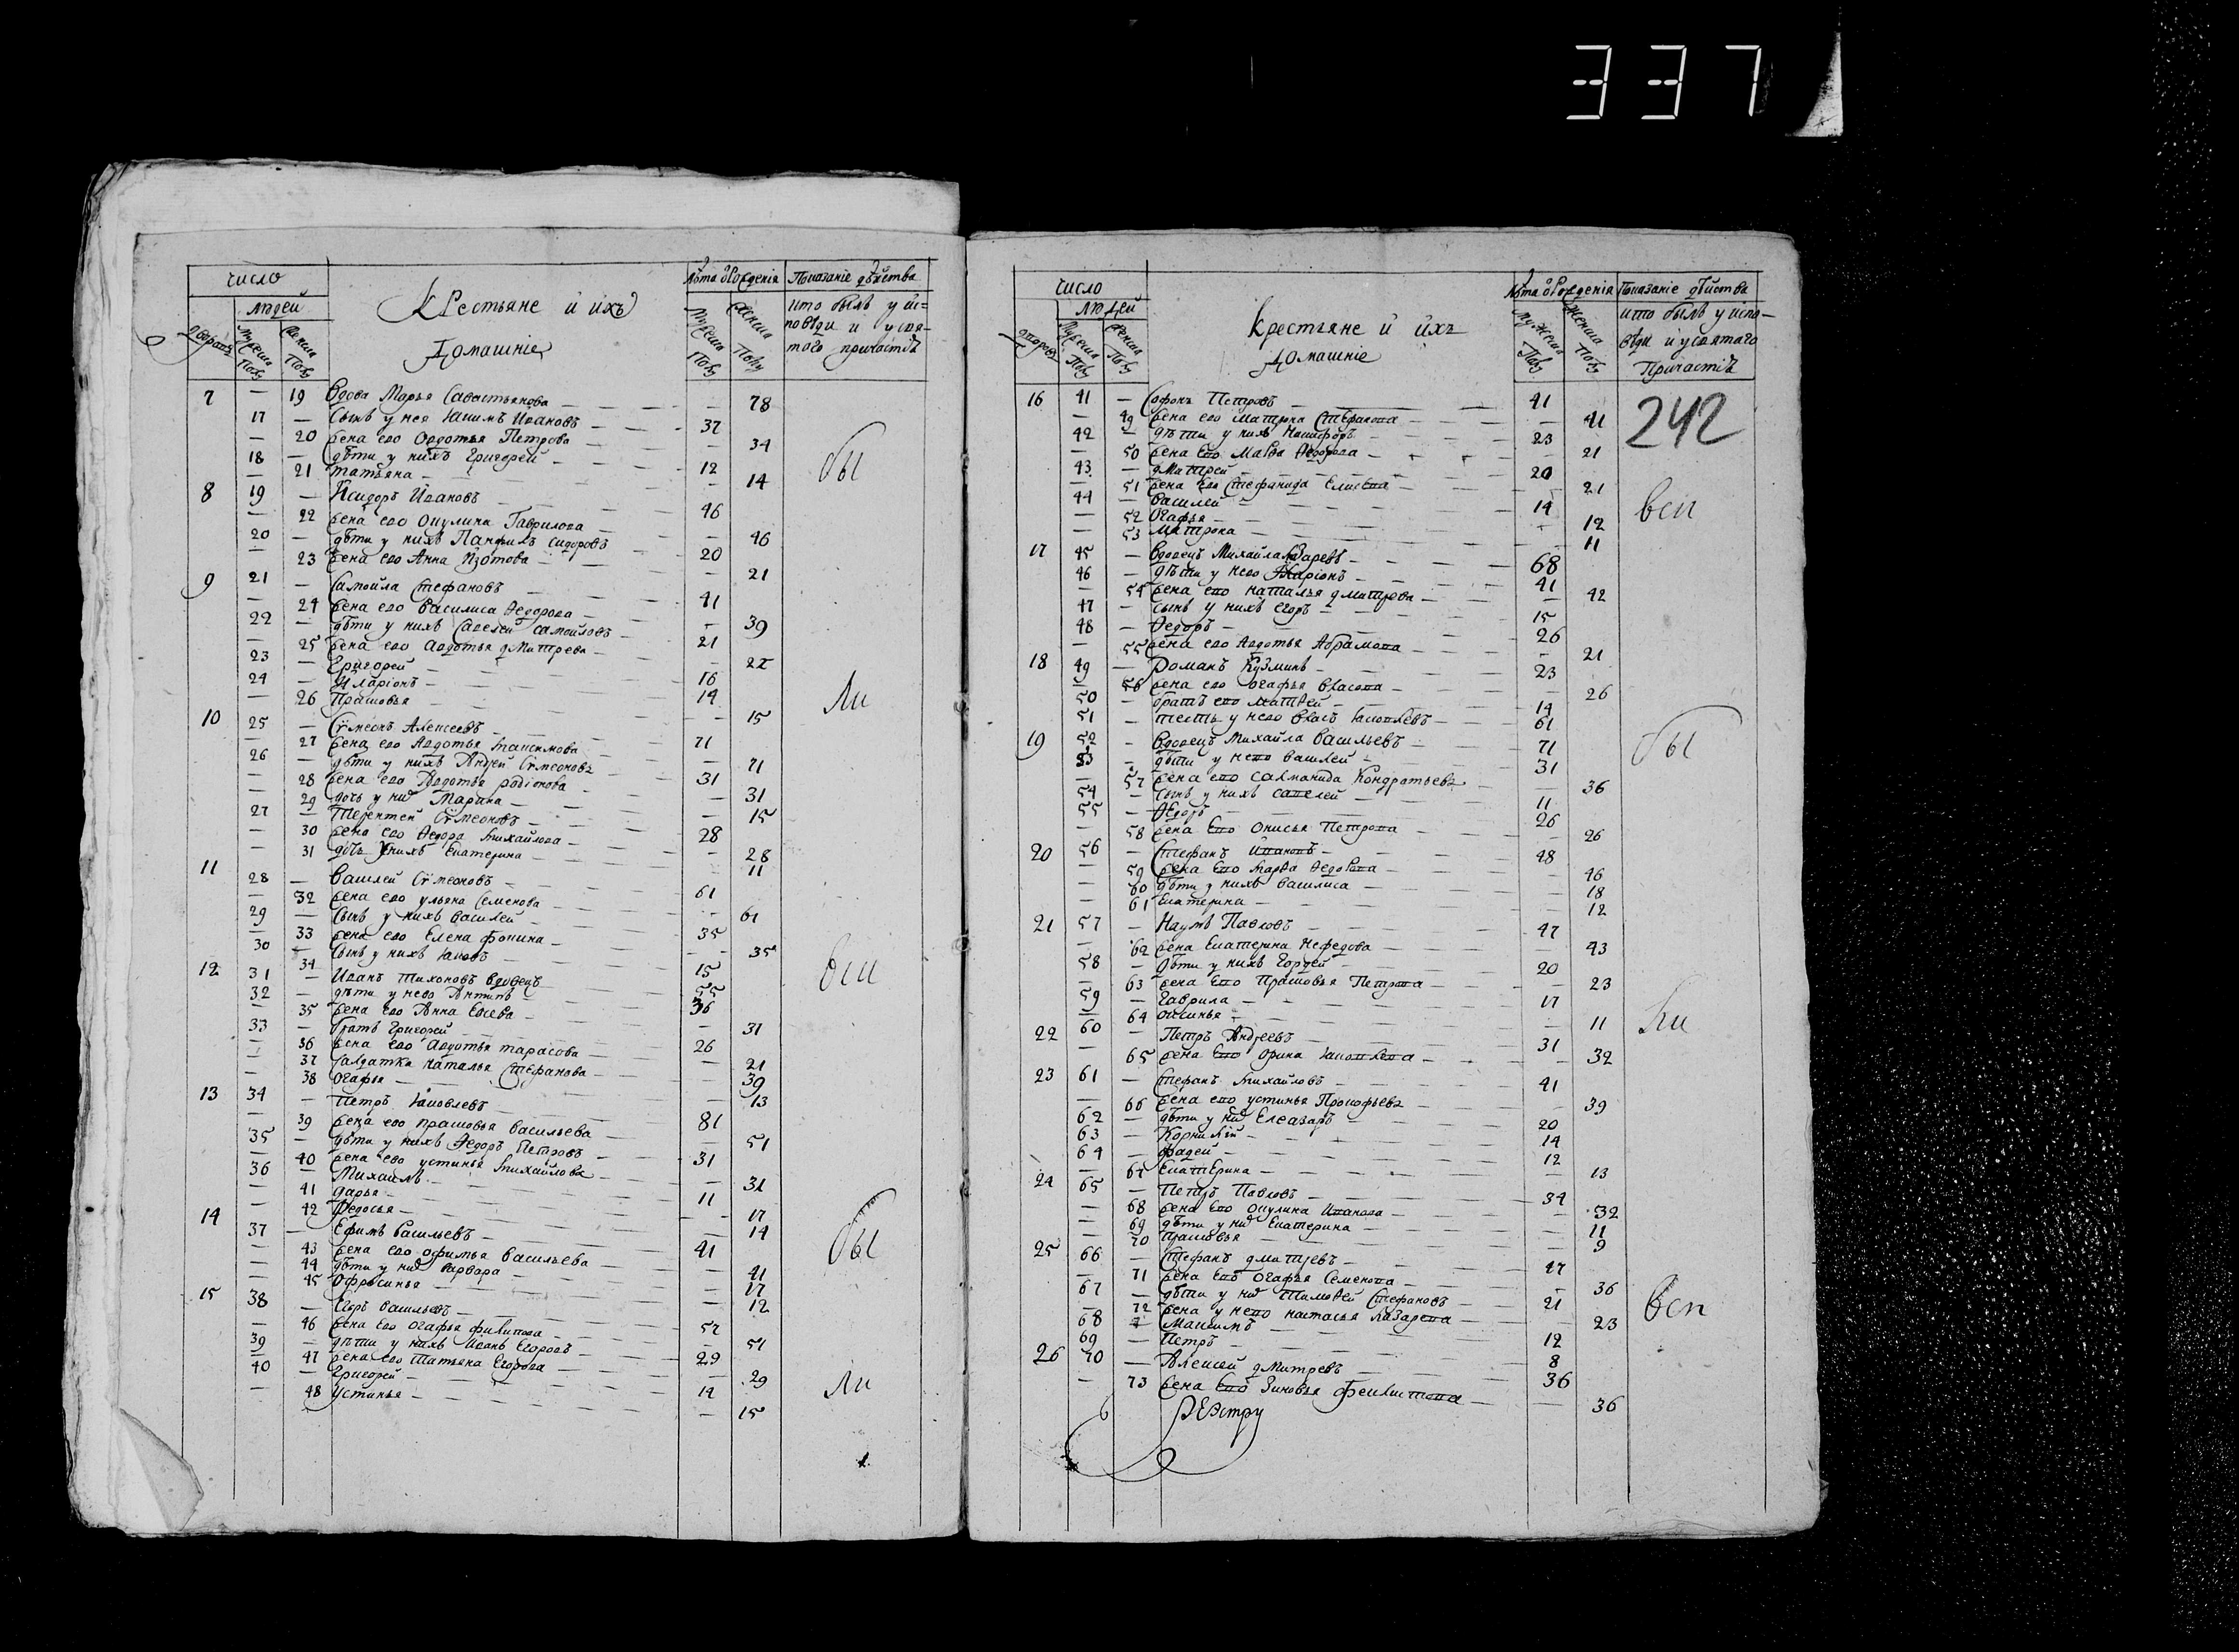 337
число
людей
дворовъ
мужеска полу
женска полу
Крестьяне и ихъ
домашние
лѣта от рождения
мужеска полу
женска полу
Показание действа
кто былъ у ис=
поведи и у свя-
таго причастия
7 — 19 Вдова Марья Савастьянова — — 78
17 — Сынъ у нея Иакимъ Ивановъ — 37
— 20 жена его Авдотья Петрова — — 34
18 — дѣти у нихъ Григорей — 12
— 21 татьяна — — 14
бы
8 19 — Исидоръ Ивановъ — 46
— 22 жена его Окулина Гаврилова — — 46
20 — дѣти у нихъ Панфилъ сидоровъ — 20
— 23 жена его Анна Изотова — — 21
9 21 — Самойла Стефановъ — 41
— 24 жена его Василиса Ѳедорова — — 39
22 — дѣти у нихъ Савелей самойловъ — 21
— 25 жена его Авдотья дмитрева — — 22
23 — Григорей — 16
24 — Иларионъ — 14
— 26 Прасковья — — 15
ли
10 25 — Сѵмеонъ Алексеевъ — 71
— 27 жена его Авдотья максимова — — 71
26 — дѣти у нихъ Андрей Сѵмеоновъ — 31
— 28 жена его Авдотья родионова — — 31
— 29 дочь у них Марина — — 15
27 — Терентей Сѵмеоновъ — 28
— 30 жена его Ѳедора михайлова — — 28
— 31 дочь у нихъ Екатерина — — 11
11 28 — Василей Сѵмеоновъ — 61
— 32 жена его ульяна Семенова — — 61
29 — Сынъ у нихъ василей — 35
— 33 жена его Елена фокина — — 35
30 — Сынъ у нихъ Иаковъ — 15
вси
12 31 34 — Иванъ Тихоновъ вдовецъ — 55
32 — дѣти у него Антипъ — 36
— 35 жена его Анна Евсева — — 31
33 — братъ Григорей — 26
— 36 жена его Авдотья тарасова — — 21
— 37 Салдатка Наталья Стефанова — — 39
— 38 Огафья — — 13
13 34 — Петръ Иаковлевъ — 81
— 39 жена его прасковья васильева — — 51
35 — дѣти у нихъ Ѳедоръ Петровъ — 31
— 40 жена его устинья михайлова — — 31
36 — Михаилъ — 11
— 41 дарья — — 17
— 42 Ѳедосья — — 14
14 37 — Ефимъ васильевъ — 41
— 43 жена его офимья васильева — — 41
— 44 дѣти у них варвара — — 17
— 45 Офросинья — — 12
бы
15 38 — Егоръ васильевъ — 52
— 46 жена его Огафья филипова — — 51
39 — дѣти у нихъ Иванъ Егоровъ — 29
— 47 жена его Татьяна Егорова — — 29
40 — Григорей — 14
— 48 Устинья — — 15
ли
число
людей
дворовъ
мужеска полу
женска полу
Крестьяне и ихъ
домашние
лѣта от рождения
мужеска полу
женска полу
Показание дѣйства
кто былъ у испо-
вѣди и у святаго
Причастия
242
16 41 — Софонъ Петровъ — 41
— 49 жена его матрона Стефанова — — 41
42 — дѣти у нихъ Никифоръ — 23
— 50 жена его Марѳа Ѳедорова — — 21
43 — дмитрей — 20
— 51 жена его Стефанида Елисева — — 21
44 — василей — 14
— 52 Огафья — — 12
— 53 матрона — — 11
вси
17 45 — вдовецъ Михайла Назаревъ — 68
46 — дѣти у него Иларионъ — 41
— 54 жена его наталья дмитрева — — 42
47 — сынъ у нихъ егоръ — 15
48 — Ѳедоръ — 26
— 55 жена его Авдотья Абрамова — — 21
18 49 — Романъ Кузминъ — 23
— 56 жена его огафья власова — — 26
50 — братъ его матвей — 14
51 — тесть у него власъ Иаковлевъ — 61
19 52 — Вдовецъ Михайла Васильевъ — 71
53 — дѣти у него василей — 31
— 57 жена его саломанида Кондратьева — — 36
54 — Сынъ у нихъ савелей — 11
55 — Ѳедоръ — 26
— 58 жена его Онисья Петрова — — 26
бы
20 56 — Стефанъ Ивановъ — 48
— 59 жена его марѳа Ѳедорова — — 46
— 60 дѣти у нихъ василиса — — 18
— 61 Екатерина — — 12
21 57 — Наумъ Павловъ — 47
— 62 жена Екатерина Нефедова — — 43
58 — дѣти у нихъ Гордей — 20
— 63 жена его Прасковья Петрова — — 23
59 — Гаврила — 17
— 64 оксинья — — 11
ли
22 60 — Петръ Андреевъ — 31
— 65 жена его Орина Иаковлева — — 32
23 61 — Стефанъ михайловъ — 41
— 66 жена его устинья Прокофьева — — 39
62 — дѣти у них Елеазаръ — 20
63 — Корнилий — 14
64 — фадей — 12
— 67 Екатерина — — 13
24 65 — Петръ Павловъ — 34
— 68 жена его окулина Иванова — — 32
— 69 дѣти у них Екатерина — — 11
— 70 прасковья — — 9
25 66 — Стефанъ дмитревъ — 47
— 71 жена его Огафья Семенова — — 36
67 — дѣти у них Тимоѳей Стефановъ — 21
— 72 жена у него настасья Лазарева — — 23
68 — Максимъ — 12
69 — Петръ — 8
вси
26 70 — Алексей дмитревъ — 36
— 73 жена его Зиновья феклистова — — 36